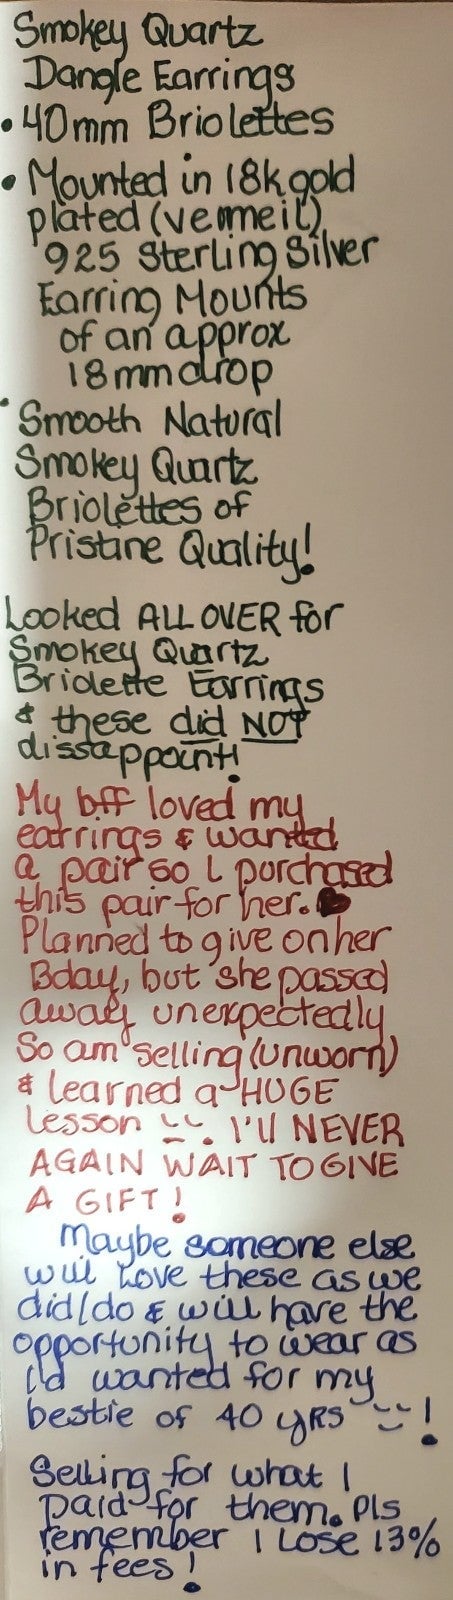 Smokey Quartz
Dangle Earrings
• 40mm Briolettes
• Mounted in 18k gold
plated (vermeil)
925 Sterling Silver
Earring Mounts
of an approx
18mm drop
• Smooth Natural
Smokey Quartz
Briolettes of
Pristine Quality!
Looked ALL OVER for
Smokey Quartz
Briolette Earrings
& these did NOT
dissappoint!
My bff loved my
earrings & wanted
a pair so I purchased
this pair for her. ♥
Planned to give on her
Bday, but she passed
away unexpectedly
So am selling (unworn)
& learned a HUGE
lesson I'll NEVER
AGAIN WAIT TO GIVE
A GIFT!
Maybe someone else
will love these as we
did/do & will have the
opportunity to wear as
I'd wanted for my
bestie of 40 yrs !
Selling for what I
paid for them. Pls
remember I lose 13%
in fees!